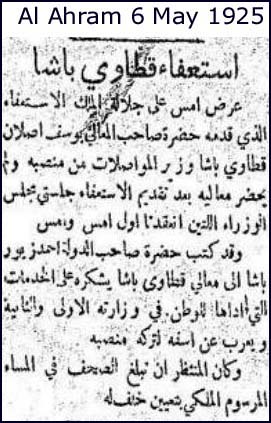 Al Ahram 6 May 1925
استعفاء قطاوي باشا
عرض امس على جلالة الملك الاستعفاء
الذي قدمه حضرة صاحب المعالي يوسف اصلان
قطاوي باشا وزير المواصلات من منصبه ولم
يحضر معاليه بعد تقديم الاستعفاء جلستي مجلس
الوزراء اللتين انعقدتا اول امس وامس
وقد كتب حضرة صاحب الدولة احمد زيور
باشا الى معالي قطاوي باشا يشكره على الخدمات
التي اداها للوطن في وزارته الاولى والثانية
ويعرب عن اسفه لتركه منصبه
وكان المنتظر ان تبلغ الصحف في المساء
المرسوم الملكي بتعيين خلف له